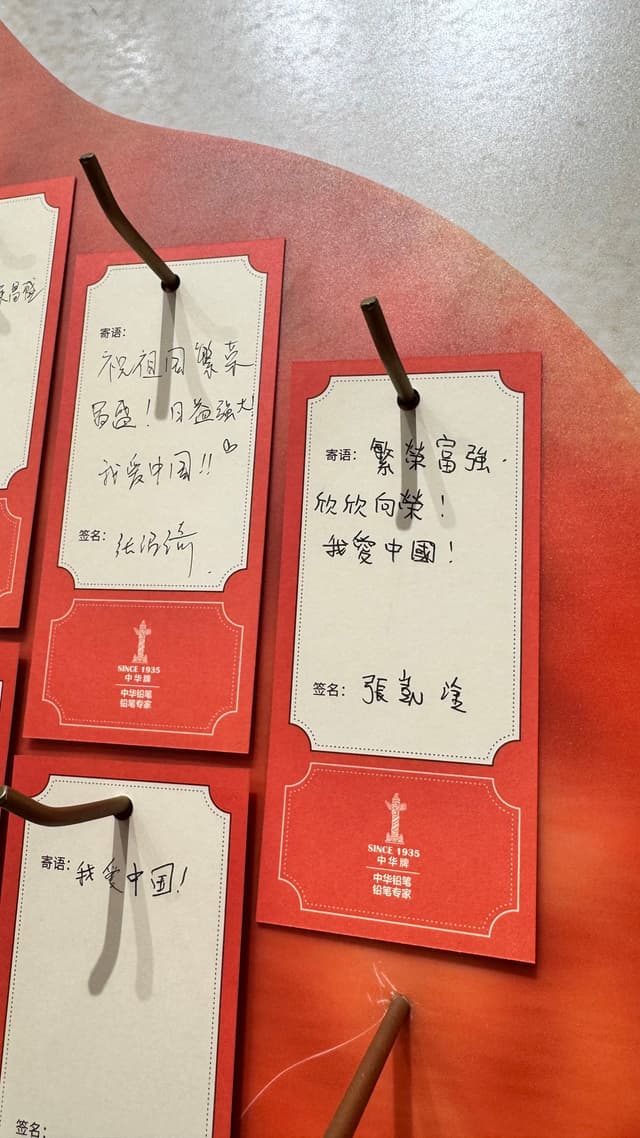 昌盛
寄语:
祝祖国繁荣
昌盛！日益强大!
我爱中国!!
签名:
SINCE 1935
中华牌
中华铅笔
铅笔专家
寄语: 繁榮富強.
欣欣向榮！
我愛中國！
签名: 張凱
SINCE 1935
中华牌
中华铅笔
铅笔专家
寄语: 我爱中国!
签名: